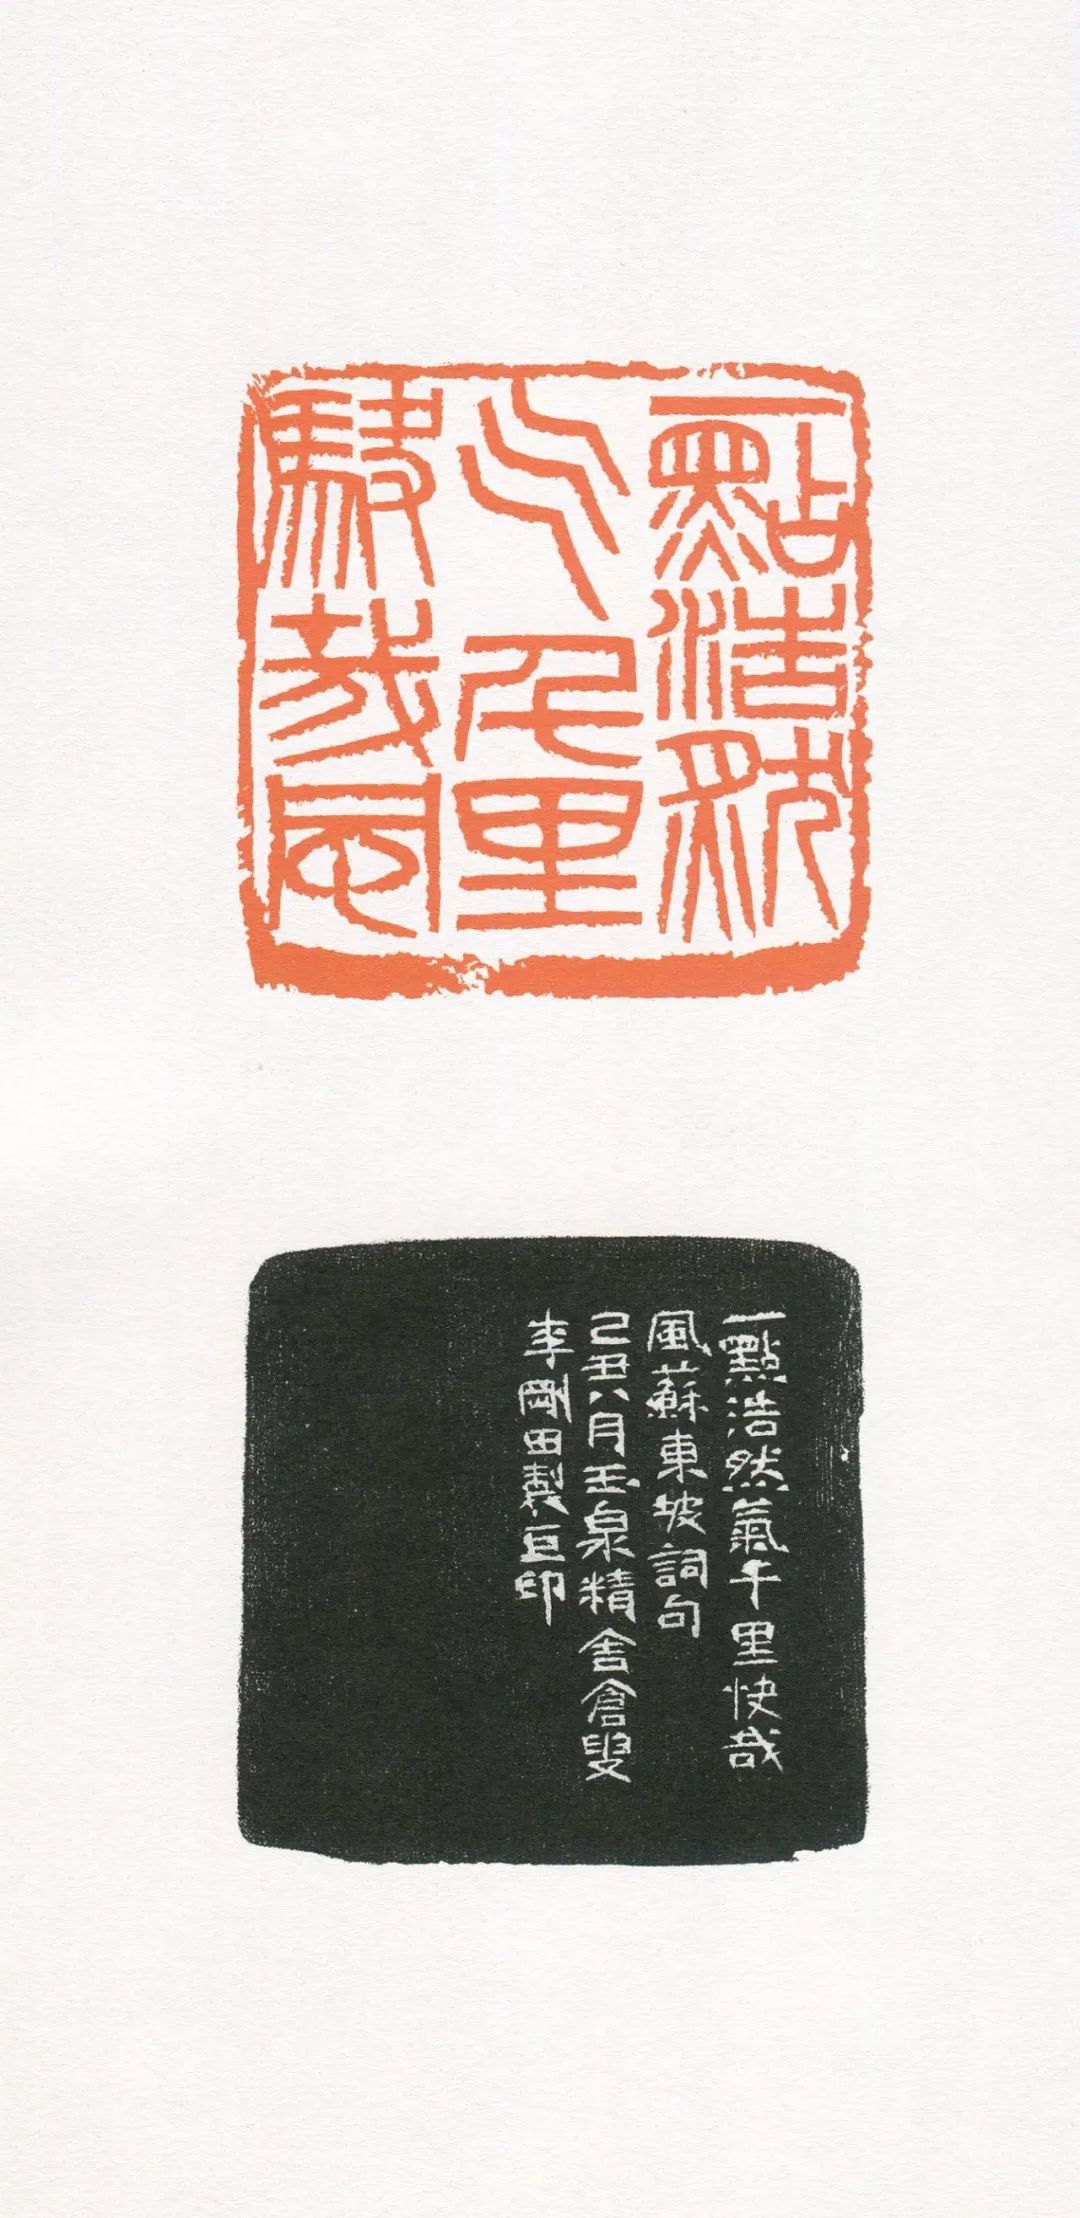 一點浩然
气千里
駃哉風
一點浩然氣千里快哉
風蘇東坡詞句
己丑八月玉泉精舍倉叟
李剛田製巨印